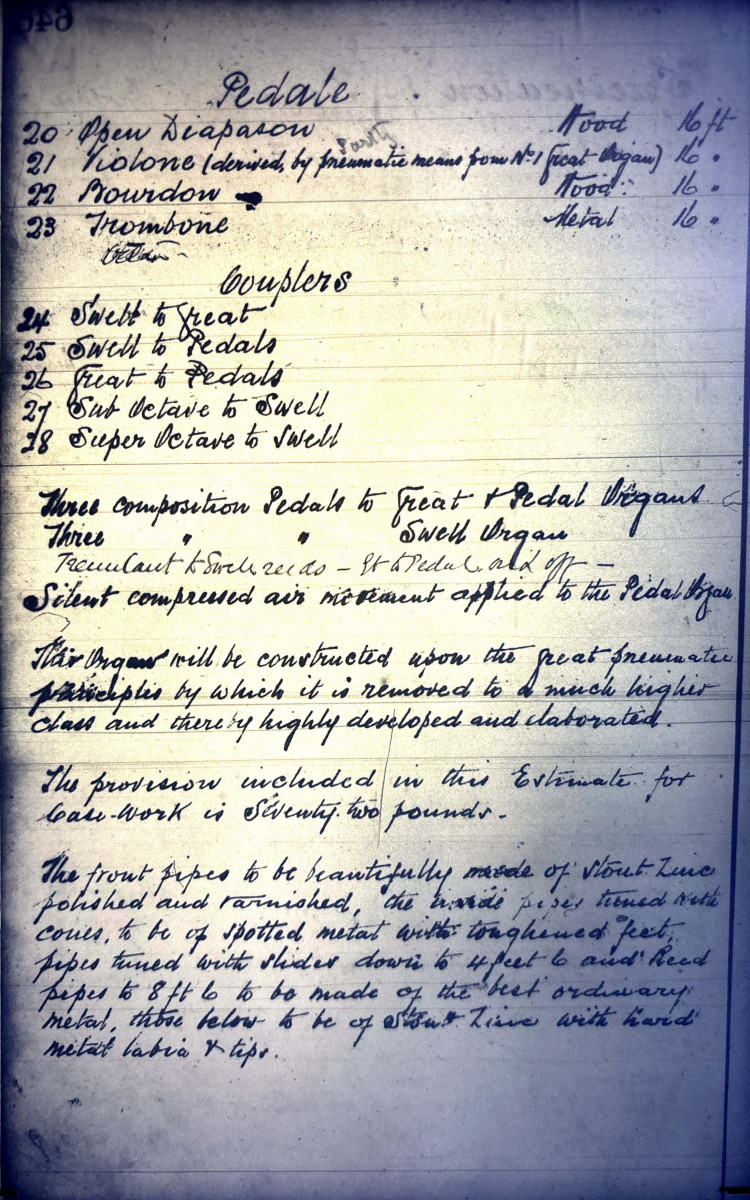 Pedale
20 Open Diapason Wood 16 ft
partly
21 Violone (derived, by pneumatic means from No 1 Great Organ) 16 "
22 Bourdon Wood 16 "
23 Trombone Metal 16 "
Couplers
24 Swell to Great
25 Swell to Pedals
26 Great to Pedals
27 Sub Octave to Swell
28 Super Octave to Swell
Three composition Pedals to Great & Pedal Organs
Three " " Swell Organ
Tremulant to Swell reeds - Gt to Pedal on & off -
Silent compressed air movement applied to the Pedal Organ
This Organ will be constructed upon the great pneumatic
principles by which it is removed to a much higher
class and thereby highly developed and elaborated.
The provision included in this Estimate for
Case-Work is Seventy-two pounds.
The front pipes to be beautifully made of stout Zinc
polished and varnished, the inside pipes tuned with
cones, to be of spotted metal with toughened feet,
pipes tuned with slides down to 4 feet 6 and Reed
pipes to 8 ft 6 to be made of the best ordinary
metal, those below to be of Stout Zinc with hard
metal labia & tips.